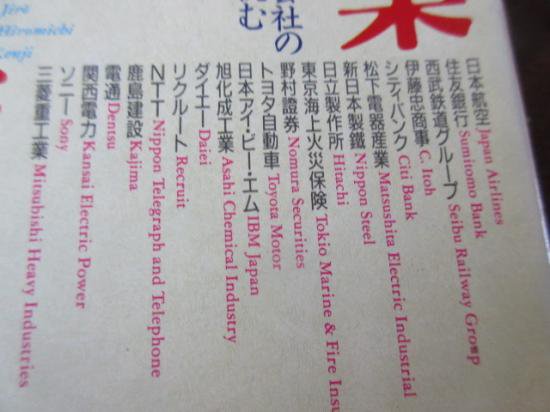 業
会社の
む
日本航空 Japan Airlines
住友銀行 Sumitomo Bank
西武鉄道グループ Seibu Railway Group
伊藤忠商事 C. Itoh
シティバンク Citi Bank
松下電器産業 Matsushita Electric Industrial
新日本製鐵 Nippon Steel
日立製作所 Hitachi
東京海上火災保険 Tokio Marine & Fire Insu
野村證券 Nomura Securities
トヨタ自動車 Toyota Motor
日本アイ・ビー・エム IBM Japan
旭化成工業 Asahi Chemical Industry
ダイエー Daiei
リクルート Recruit
NTT Nippon Telegraph and Telephone
鹿島建設 Kajima
電通 Dentsu
関西電力 Kansai Electric Power
ソニー Sony
三菱重工業 Mitsubishi Heavy Industries
Jirō
Hiromichi
Kenji